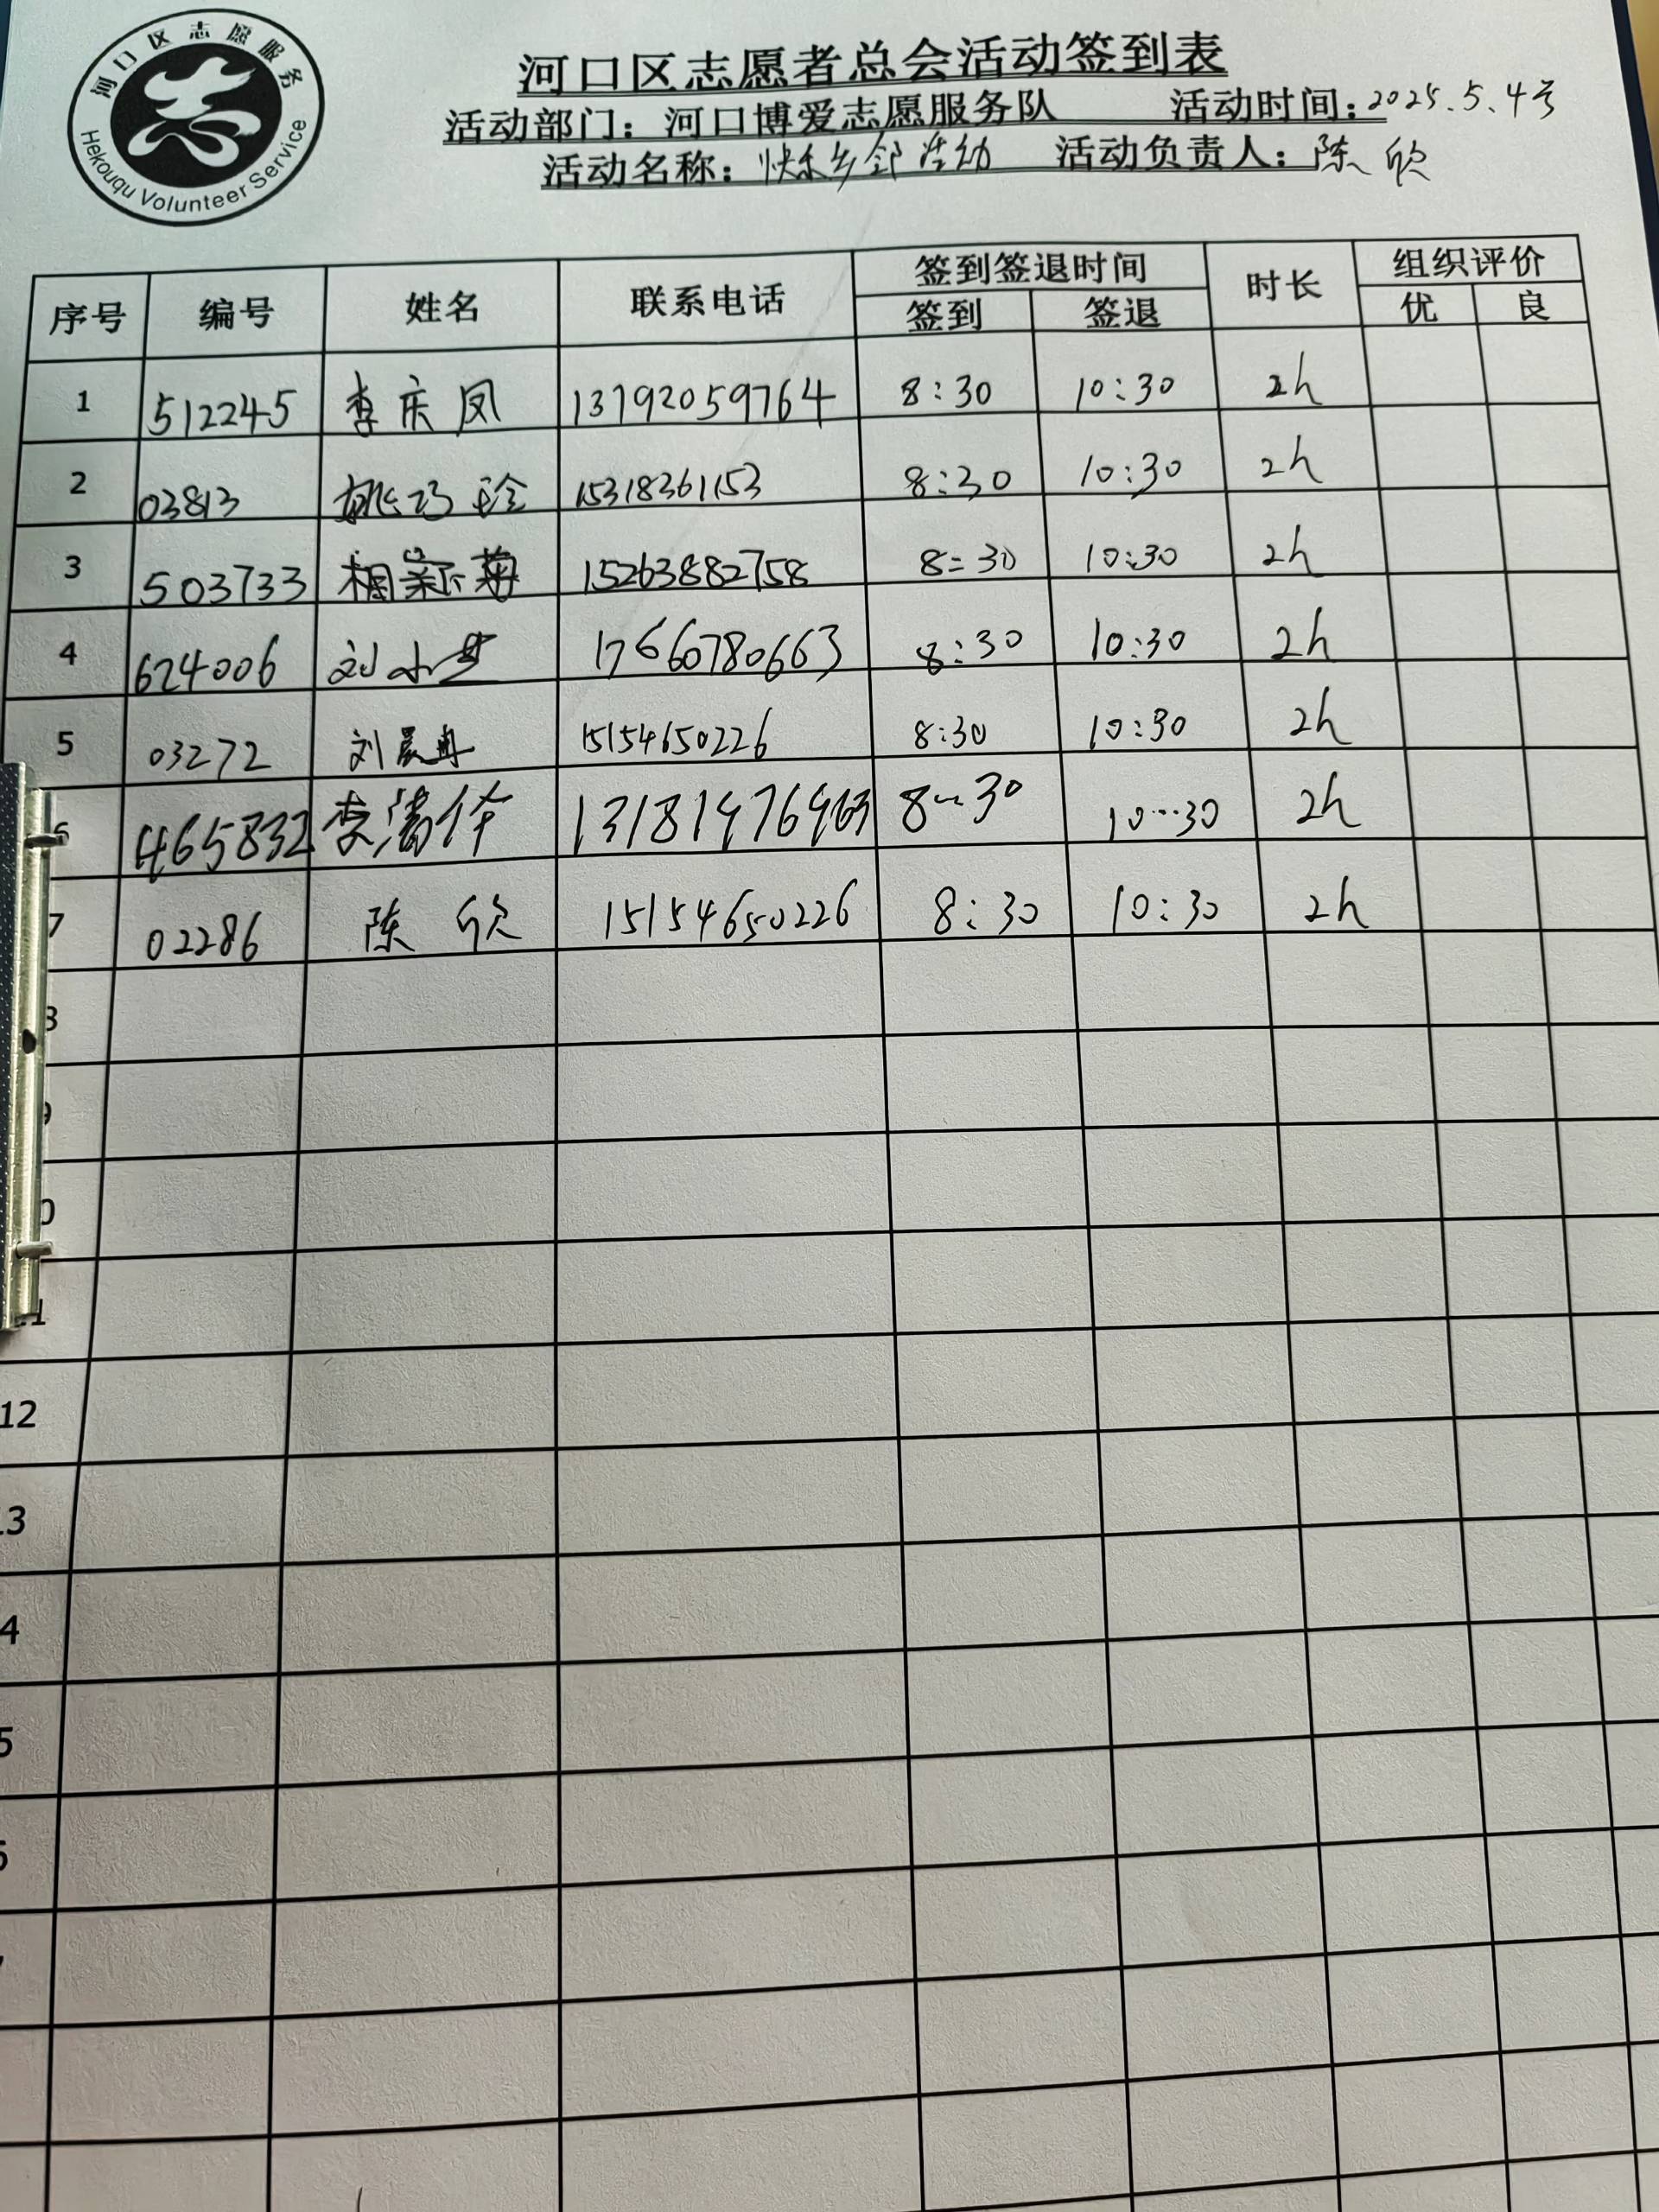 河口区志愿服务
Hekouqu Volunteer Service
河口区志愿者总会活动签到表
活动部门：河口博爱志愿服务队 活动时间：2025.5.4号
活动名称：快乐乡邻活动 活动负责人：陈欣
序号 编号 姓名 联系电话 签到签退时间 时长 组织评价
签到 签退 优 良
1 512245 李庆凤 13792059764 8:30 10:30 2h
2 03813 姚巧玲 15318361153 8:30 10:30 2h
3 503733 相新梅 15263882758 8=30 10:30 2h
4 624006 刘小 17660780663 8:30 10:30 2h
5 03272 刘晨冉 15154650226 8:30 10:30 2h
6 465832 李 8~30 10…30 2h
7 02286 陈欣 15154650226 8:30 10:30 2h
8
9
0
11
12
13
4
5
6